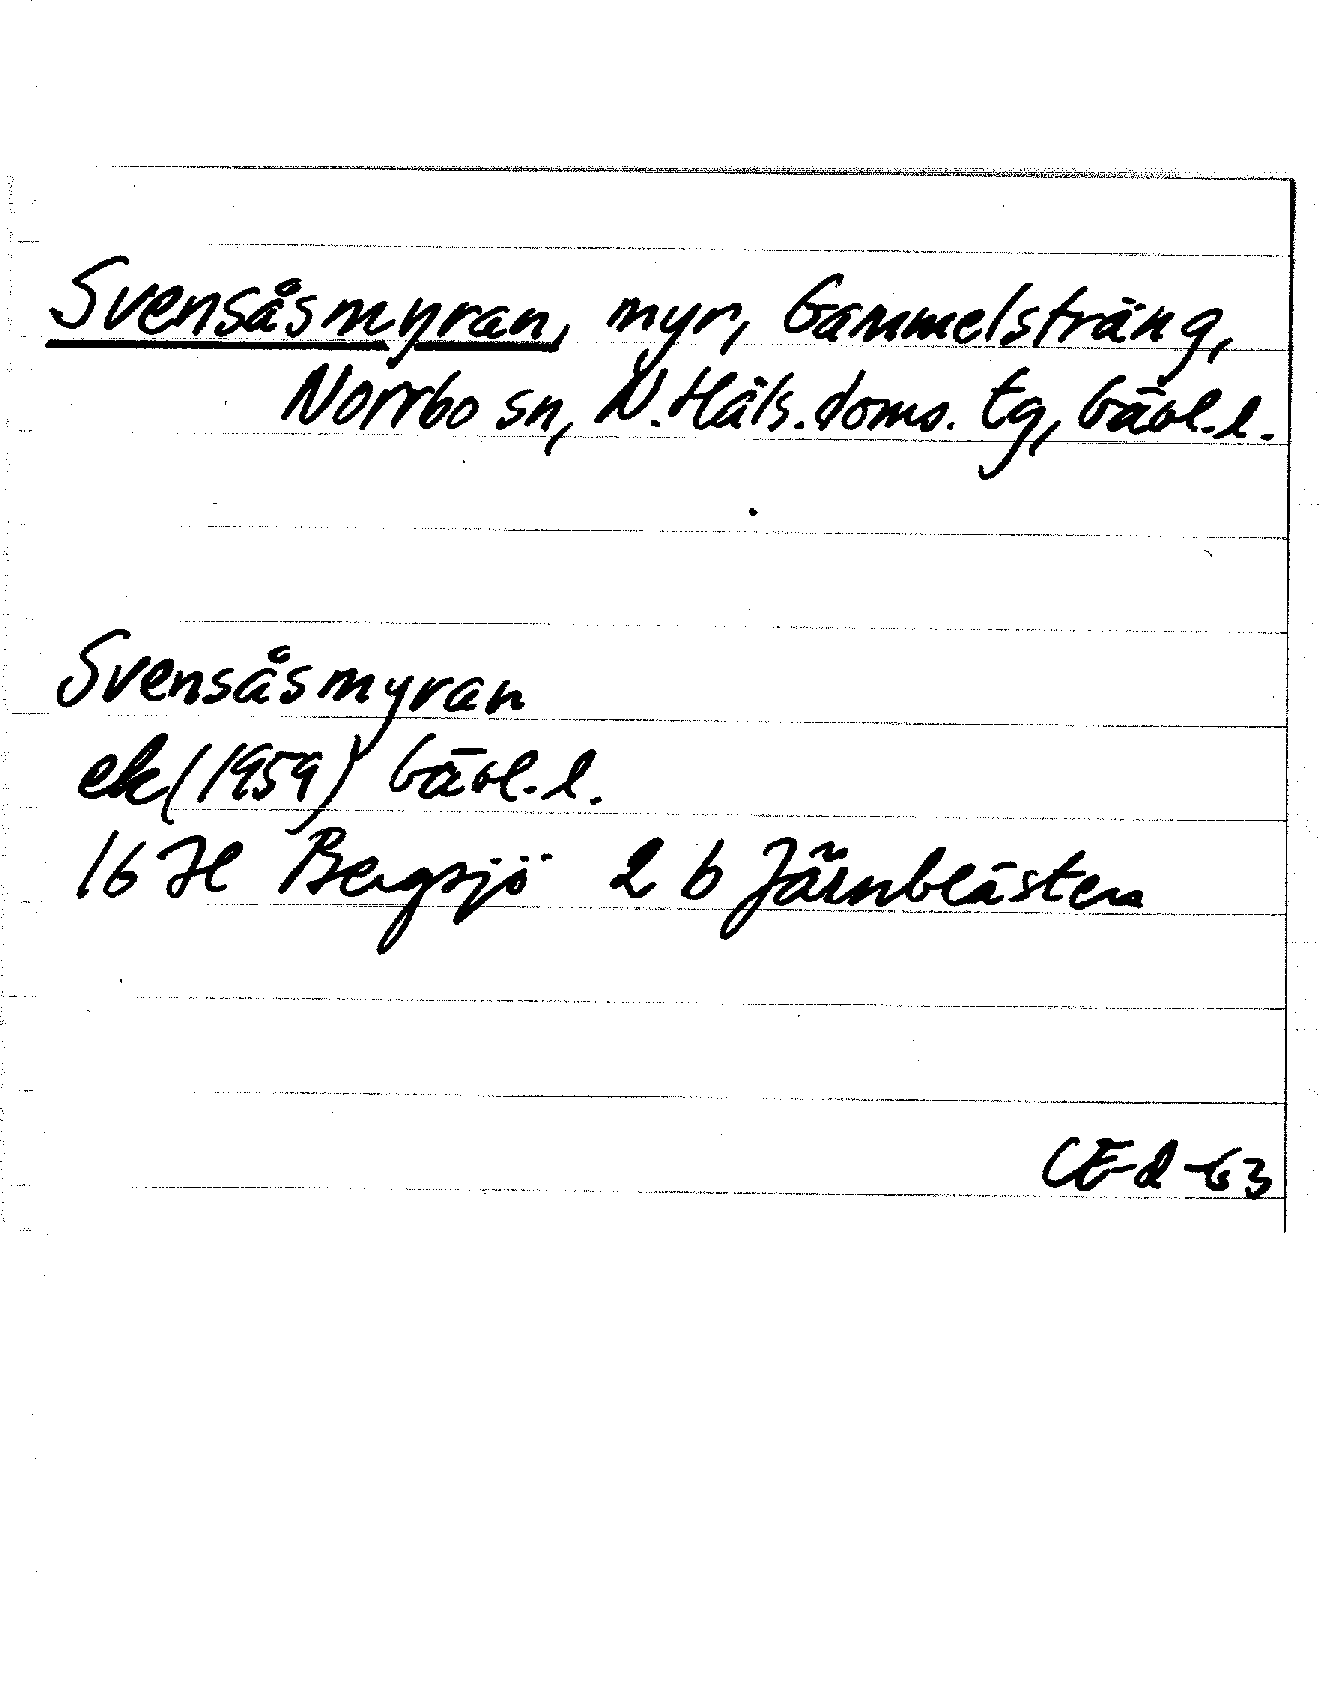 Svensåsmyran, myr, Gammelsträng,
Norrbo sn, N. Häls. doms. tg, Gävl. l.
Svensåsmyran
ek (1959) Gävl. l.
16 H Bergsjö 2 b Järnblästen
CE-d -63